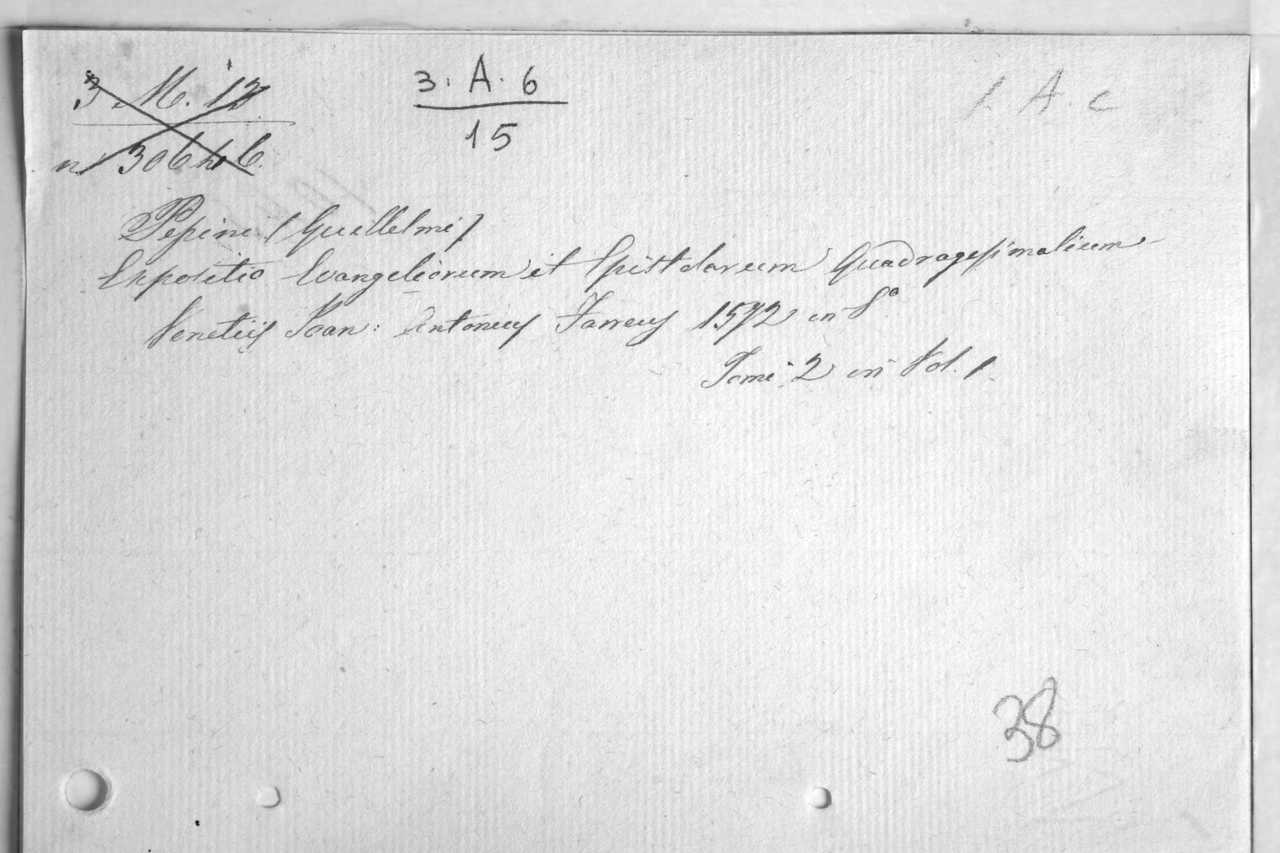 3. M. 12
n. 306
3. A. 6
15
1. A. c
Pepini (Guillelmi)
Expositio Evangeliorum et Epistolarum Quadragesimalium
Venetiis Joan: Antonius Farreus 1572 in 8°
Tomi 2 in Vol. 1.
38